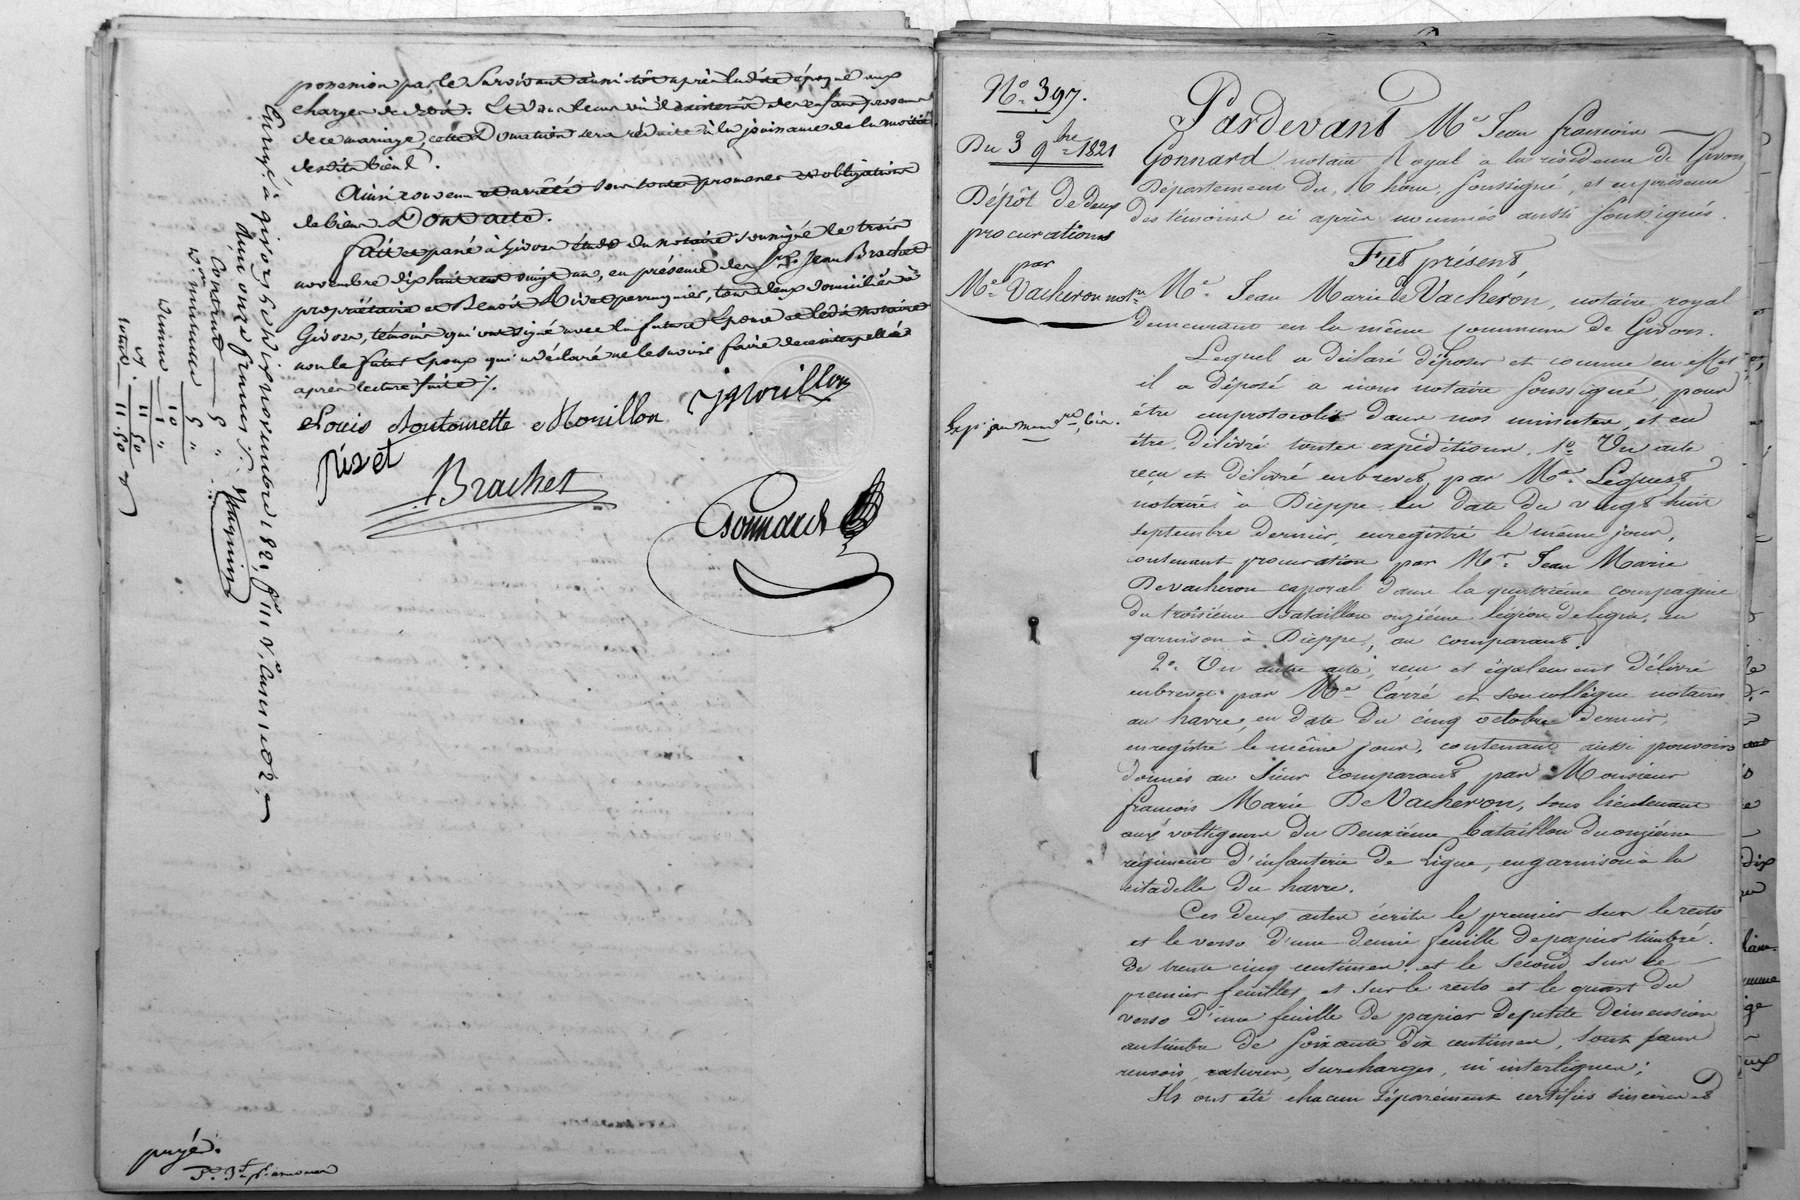 possession par le survivant aussitôt après ladite époque aux
charges de droit. Et dans le cas où il existerait des enfans provenus
de ce mariage, cette Donation sera réduite à la jouissance de la moitié
desdits biens.
Ainsi convenu et arrêté sous toutes promesses et obligations
de biens Dont acte.
fait et passé à Givors étude du notaire soussigné le trois
novembre dix huit cent vingt un, en présence des Srs Jean Brachet
propriétaire et Benoit Rivet perruquier, tous deux domiciliés à
Givors, témoins qui ont signé avec la future Epouse et ledit notaire
non le futur Epoux qui a déclaré ne le savoir faire de ce interpellé
après lecture faite ./.
Louis Montmorillon
Brachet
Gonnard
Enregé à givors le dix novembre 1821, fo 111 Vo Cases 1 et 2
onze francs
Contrat 5 "
5 "
10 "
dixième 1 "
11 "
" 50
total 11.50
payé.
No 397.
Du 3 9bre 1821
Dépôt de deux
procurations
par
Me Vacheron notre
Pardevant Me Jean françois
Gonnard notaire Royal à la résidence de Givors
Département du Rhône, soussigné, et en présence
des témoins ci après nommés aussi soussignés.
Fut présent
Me Jean Marie de Vacheron, notaire royal
demeurant en la même commune de Givors.
Lequel a déclaré déposer et comme en effet
il a déposé à nous notaire soussigné, pour
être emprotocolé dans nos minutes, et en
être délivré toutes expéditions, 1o Un acte
reçu et délivré en brevet, par Me Leguest
notaire à Dieppe en date du vingt huit
septembre dernier, enregistré le même jour,
contenant procuration par Mr Jean Marie
Devacheron caporal dans la quatrième compagnie
du troisième Bataillon onzième légion de ligne, en
garnison à Dieppe, au comparant.
2o Un autre acte, reçu et également délivré
en brevet par Me Carré et son collègue notaires
au havre, en date du cinq octobre dernier,
enregistré le même jour, contenant aussi pouvoirs
donnés au sieur comparant par Monsieur
françois Marie De Vacheron, sous lieutenant
aux voltigeurs du Deuxième bataillon du onzième
régiment d'infanterie de Ligne, en garnison à la
citadelle du havre.
Ces deux actes écrits le premier sur le recto
et le verso d'une demie feuille de papier timbré
de trente cinq centimes, et le second sur le
premier feuillet et sur le recto et le quart du
verso d'une feuille de papier de petite dimension
au timbre de soixante dix centimes, sont sans
renvois, ratures, surcharges, ni interlignes;
Ils ont été chacun séparément certifiés sincères et